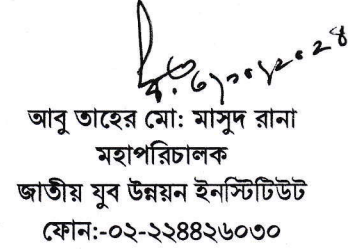 আবু তাহের মো: মাসুদ রানা
মহাপরিচালক
জাতীয় যুব উন্নয়ন ইনস্টিটিউট
ফোন:-০২-২২৪৪২৬০৩০